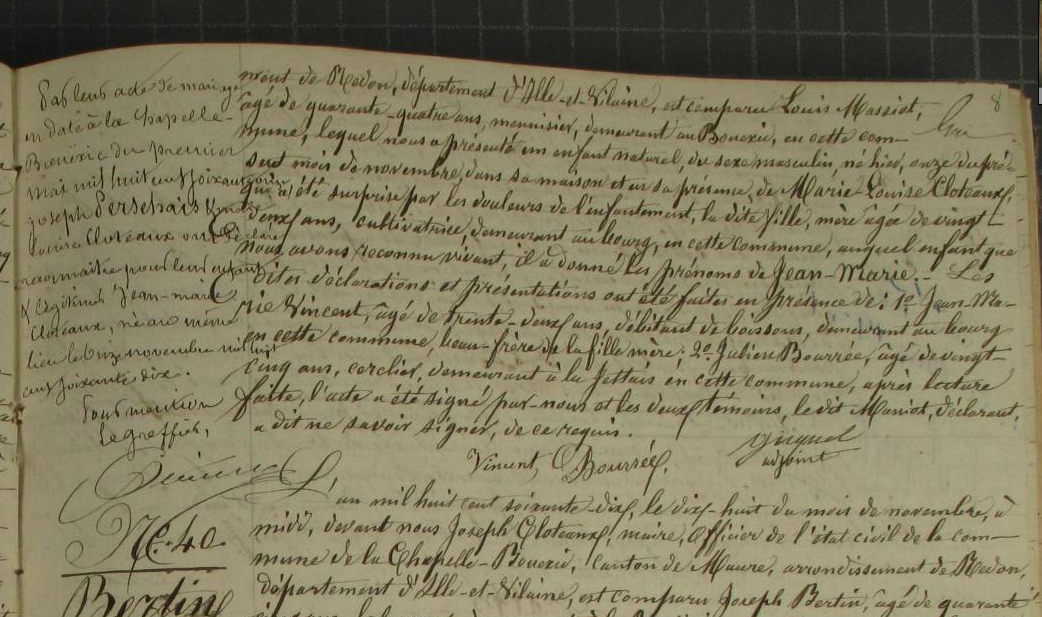 8
Par leur acte de mariage
en date à la Chapelle-
Bouëxic du premier
mai mil huit cent soixante onze
joseph Persehais & marie
louise Cloteaux ont déclaré
reconnaître pour leur enfant
& légitimé Jean-marie
Cloteaux, né au même
lieu le onze novembre mil huit
cent soixante dix.
Pour mention
le greffier,
ment de Redon, département d'Ille-et-Vilaine, est comparu Louis Massiot,
âgé de quarante-quatre ans, menuisier, demeurant au Bouexic, en cette com-
mune, lequel nous a présenté un enfant naturel, du sexe masculin, né hier, onze du pré-
sent mois de novembre, dans sa maison et en sa présence, de Marie-Louise Cloteaux,
qui a été surprise par les douleurs de l'enfantement, la dite fille, mère âgée de vingt-
deux ans, cultivatrice, demeurant au bourg, en cette commune, auquel enfant que
nous avons reconnu vivant, il a donné les prénoms de Jean-Marie. Les
dites déclarations et présentations ont été faites en présence de: 1º Jean-Ma-
rie Vincent, âgé de trente-deux ans, débitant de boissons, demeurant au bourg
en cette commune, beau-frère de la fille mère: 2º Julien Bourrée, âgé de vingt-
cinq ans, cerclier, demeurant à la Jettais en cette commune, après lecture
faite, l'acte a été signé par nous et les deux témoins, le dit Massiot, déclarant,
a dit ne savoir signer, de ce requis.
Vincent, Bourrée,
adjoint
Nº 40
Bertin
L'an mil huit cent soixante-dix, le dix-huit du mois de novembre, à
midi, devant nous Joseph Cloteaux, maire, Officier de l'état civil de la com-
mune de la Chapelle-Bouexic, Canton de Maure, arrondissement de Redon,
département d'Ille-et-Vilaine, est comparu Joseph Bertin, âgé de quarante